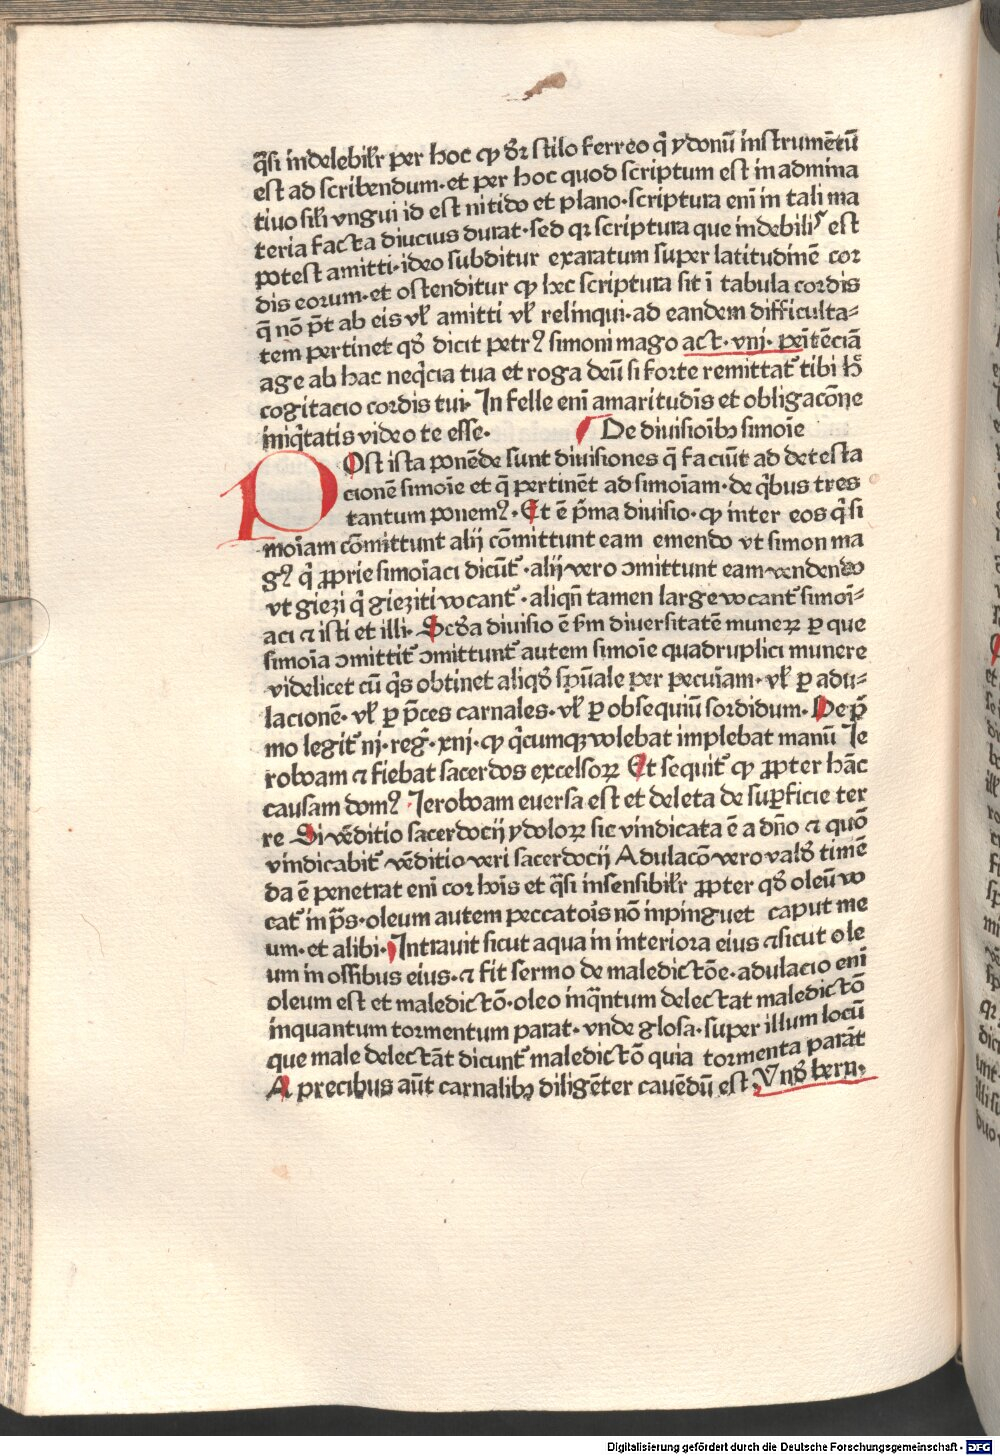 q̄si indelebilr̄ per hoc qꝫ dr̄ stilo ferreo q̄ ydonū instrumētū
est ad scribendum·et per hoc quod scriptum est in admina
tiuo sili vngui id est nitido et plano·scriptura eni in tali ma
teria facta diucius durat·sed qꝛ scriptura que indebilir est
potest amitti·ideo subditur exaratum super latitudinē cor
dis eorum·et ostenditur qꝫ hec scriptura sit ī tabula cordis
q̄ nō pt̄ ab eis vl̄ amitti vl̄ relinqui·ad eandem difficulta⸗
tem pertinet qđ dicit petrꝰ simoni mago act·viij· penitēciā
age ab hac neq̄cia tua et roga deū si forte remittat᷑ tibi h̄
cogitacio cordis tui· In felle eni amaritudis et obligacōne
iniq̄tatis video te esse·
De diuisioibꝫ simoīe
POst ista ponēde sunt diuisiones q̄ faciūt ad detesta
cionē simoīe et q̄ pertinēt ad simoiam·de q̄bus tres
tantum ponemꝰ·Et ē pͥma diuisio·qꝫ inter eos q̄ si
moiam cōmittunt alij cōmittunt eam emendo vt simon ma
gꝰ q̄ ꝓprie simoīaci dicūt᷑·alij vero ꝯmittunt eam vendendo
vt giezi q̄ gieziti vocant᷑·aliqn̄ tamen large vocant᷑ simoī⸗
aci ⁊ isti et illi· Scd̄a diuisio ē ſm diuersitatē munerꝝ ꝑ que
simoīa ꝯmittit᷑ ꝯmittunt᷑ autem simoīe quadruplici munere
videlicet cū q̄s obtinet aliqđ spūale per pecuīam·vl̄ ꝑ adu⸗
lacionē·vl̄ ꝑ p̄ces carnales·vl̄ ꝑ obsequiū sordidum·De pͥ
mo legit᷑ iij·reg̓·xiij·qꝫ q̄cumqꝫ volebat implebat manū Ie
roboam ⁊ fiebat sacerdos excelsorꝝ Et sequit᷑ qꝫ ꝓpter hāc
causam domꝰ Ieroboam euersa est et deleta de suꝑficie ter
re Si vēditio sacerdocij ydolorꝝ sic vindicata ē a dn̄o ⁊ quō
vindicabit᷑ vēditio veri sacerdocij Adulacō vero valđ timē
da ē penetrat eni cor hois et q̄si insensibilr̄ ꝓpter qđ oleū vo
cat᷑ in p̄s·oleum autem peccatois nō inpinguet caput me
um·et alibi·Intrauit sicut aqua in interiora eius ⁊ sicut ole
um in ossibus eius·⁊ fit sermo de maledictōe·adulacio eni
oleum est et maledictō·oleo inq̄ntum delectat maledictō
inquantum tormentum parat·vnde glosa·super illum locū
que male delectāt dicunt᷑ maledictō quia tormenta parāt
A precibus aūt carnalibꝫ diligēter cauēdū est, Vnđ bern·
Digitalisierung gefördert durch die Deutsche Forschungsgemeinschaft - DFG